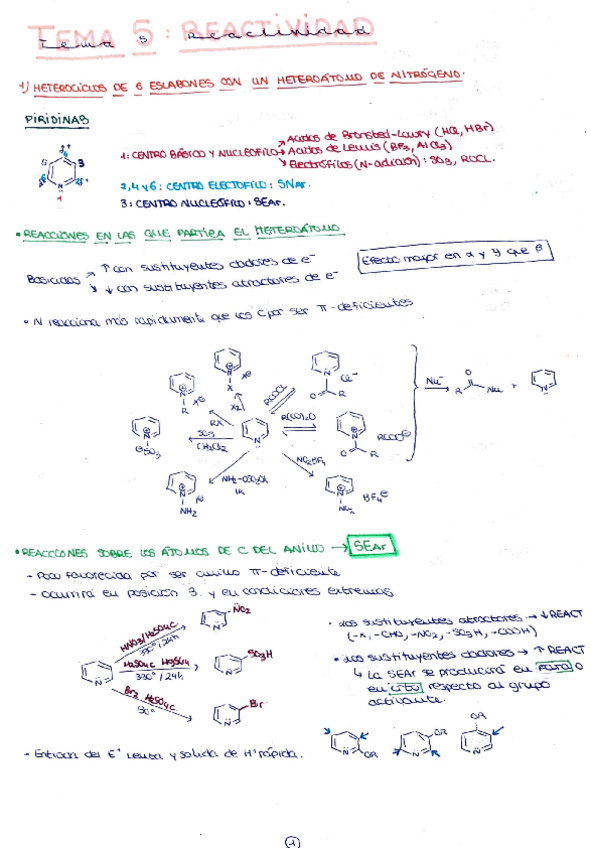 TEMA 5: REACTIVIDAD
Tema 5 Reactividad
1) HETEROCICLOS DE 6 ESLABONES CON UN HETEROÁTOMO DE NITRÓGENO.
PIRIDINAS
1: CENTRO BÁSICO Y NUCLEÓFILO
Ácidos de Bronsted-Lowry (HCl, HBr)
Ácidos de Lewis (BF3, AlCl3)
Electrófilos (N-adición): SO3, ROCl.
2,4 y 6: CENTRO ELECTÓFILO: SNAr.
3: CENTRO NUCLEÓFILO: SEAr.
• REACCIONES EN LAS QUE PARTICIPA EL HETEROÁTOMO
Basicidad ↗ ↑ con sustituyentes dadores de e-
↘ ↓ con sustituyentes atractores de e-
Efecto mayor en α y γ que β
• N reacciona más rápidamente que los C por ser π-deficientes
RCOCl
R(CO)2O
NO2BF4
NH2-OSO3H
SO3
CH2Cl2
RX
X2
Cl⁻
RCOO⊖
BF4⊖
NO2
NH2
⊖SO3
Nu⁻
• REACCIONES SOBRE LOS ÁTOMOS DE C DEL ANILLO → SEAr
- Poco favorecida por ser anillo π-deficiente
- Ocurrirá en posición 3 y en condiciones extremas
HNO3/H2SO4 C
330°/24h
NO2
H2SO4 C HgSO4
330°/24h
SO3H
Br2 H2SO4 C
Br
• Los sustituyentes atractores → ↓ REACT
(-X, -CHO, -NO2, -SO3H, -COOH)
• Los sustituyentes dadores → ↑ REACT
↳ La SEAr se producirá en para o
en orto respecto al grupo
activante.
OR
OR
OR
- Entrada del E⁺ lenta y salida de H⁺ rápida.
1